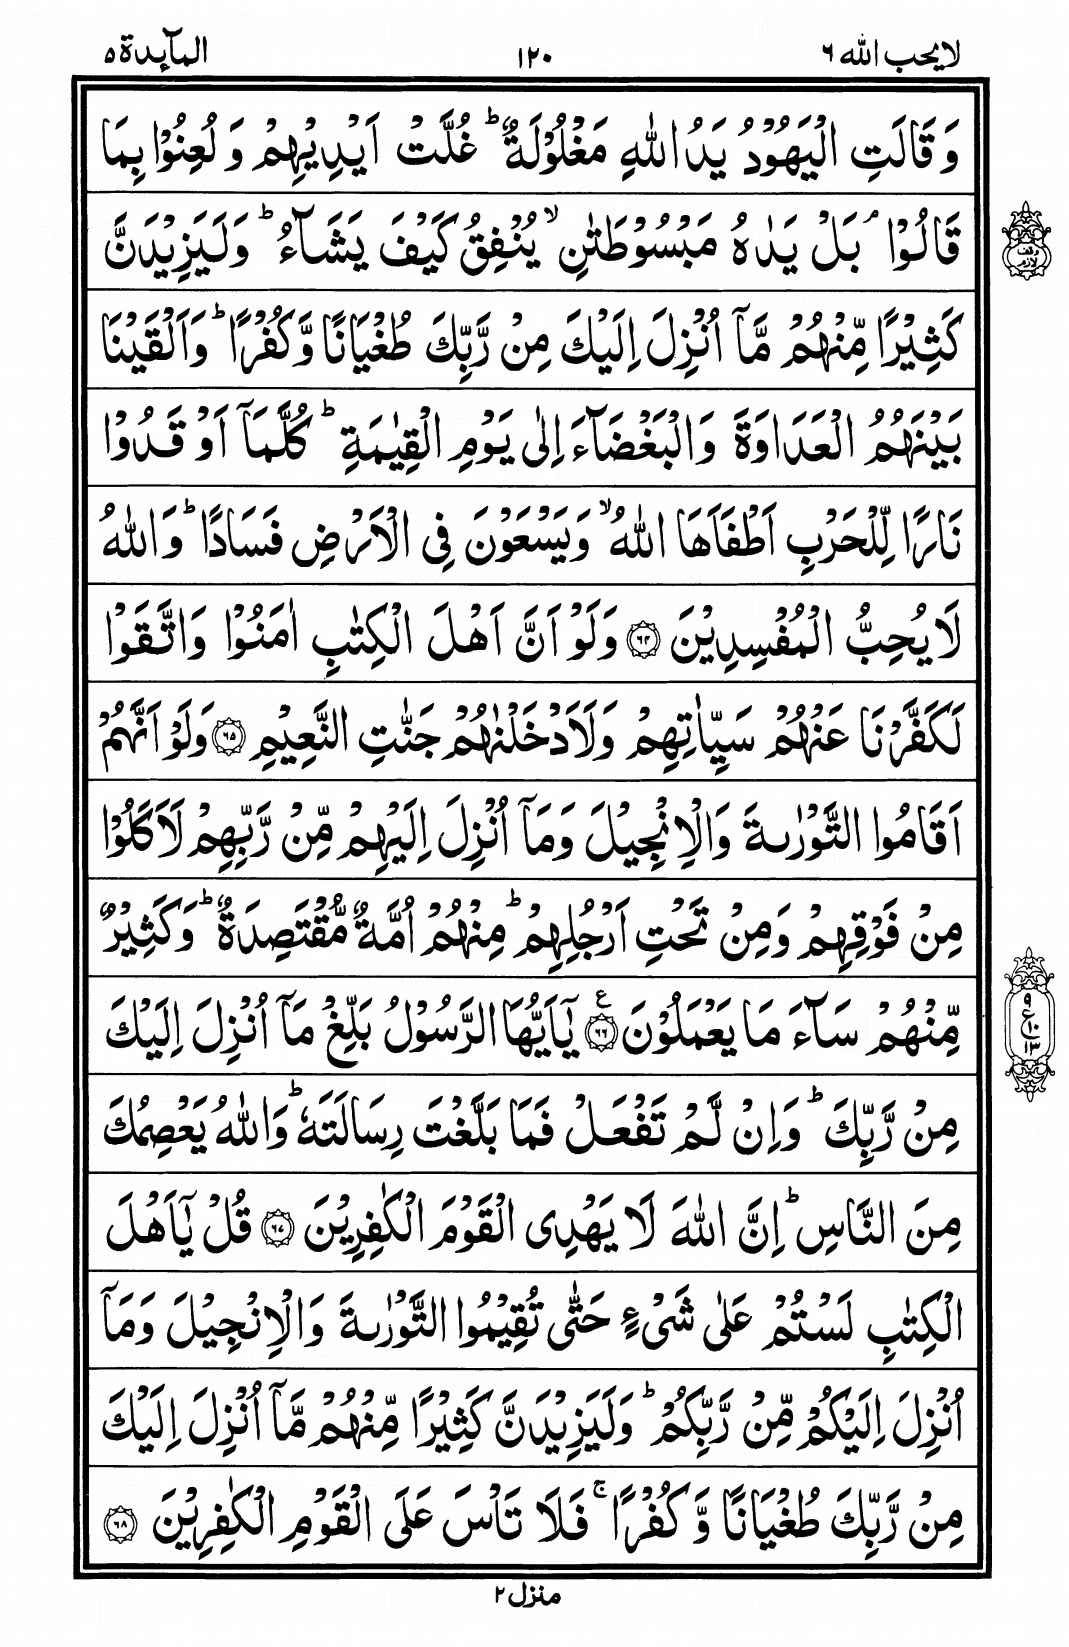 لايحب الله ٦
١٢٠
المآىِٕدة ٥
وَقَالَتِ الْيَهُوْدُ يَدُ اللّٰهِ مَغْلُوْلَةٌ ؕ غُلَّتْ اَيْدِيْهِمْ وَ لُعِنُوْا بِمَا
قَالُوْا ۘ بَلْ يَدٰهُ مَبْسُوْطَتٰنِ ۙ يُنْفِقُ كَيْفَ يَشَآءُ ؕ وَلَيَزِيْدَنَّ
وقف لازم
كَثِيْرًا مِّنْهُمْ مَّآ اُنْزِلَ اِلَيْكَ مِنْ رَّبِّكَ طُغْيَانًا وَّكُفْرًا ؕ وَاَلْقَيْنَا
بَيْنَهُمُ الْعَدَاوَةَ وَالْبَغْضَآءَ اِلٰى يَوْمِ الْقِيٰمَةِ ؕ كُلَّمَآ اَوْقَدُوْا
نَارًا لِّلْحَرْبِ اَطْفَاَهَا اللّٰهُ ۙ وَيَسْعَوْنَ فِى الْاَرْضِ فَسَادًا ؕ وَاللّٰهُ
لَا يُحِبُّ الْمُفْسِدِيْنَ ﴿٦٤﴾ وَلَوْ اَنَّ اَهْلَ الْكِتٰبِ اٰمَنُوْا وَاتَّقَوْا
لَكَفَّرْنَا عَنْهُمْ سَيِّاٰتِهِمْ وَلَاَدْخَلْنٰهُمْ جَنّٰتِ النَّعِيْمِ ﴿٦٥﴾ وَلَوْ اَنَّهُمْ
اَقَامُوا التَّوْرٰىةَ وَالْاِنْجِيْلَ وَمَآ اُنْزِلَ اِلَيْهِمْ مِّنْ رَّبِّهِمْ لَاَكَلُوْا
مِنْ فَوْقِهِمْ وَمِنْ تَحْتِ اَرْجُلِهِمْ ؕ مِنْهُمْ اُمَّةٌ مُّقْتَصِدَةٌ ؕ وَكَثِيْرٌ
مِّنْهُمْ سَآءَ مَا يَعْمَلُوْنَ ﴿٦٦﴾ ع يٰٓاَيُّهَا الرَّسُوْلُ بَلِّغْ مَآ اُنْزِلَ اِلَيْكَ
٩
ع ١٠
١٣
مِنْ رَّبِّكَ ؕ وَاِنْ لَّمْ تَفْعَلْ فَمَا بَلَّغْتَ رِسَالَتَهٗ ؕ وَاللّٰهُ يَعْصِمُكَ
مِنَ النَّاسِ ؕ اِنَّ اللّٰهَ لَا يَهْدِى الْقَوْمَ الْكٰفِرِيْنَ ﴿٦٧﴾ قُلْ يٰٓاَهْلَ
الْكِتٰبِ لَسْتُمْ عَلٰى شَىْءٍ حَتّٰى تُقِيْمُوا التَّوْرٰىةَ وَالْاِنْجِيْلَ وَمَآ
اُنْزِلَ اِلَيْكُمْ مِّنْ رَّبِّكُمْ ؕ وَلَيَزِيْدَنَّ كَثِيْرًا مِّنْهُمْ مَّآ اُنْزِلَ اِلَيْكَ
مِنْ رَّبِّكَ طُغْيَانًا وَّ كُفْرًا ۚ فَلَا تَاْسَ عَلَى الْقَوْمِ الْكٰفِرِيْنَ ﴿٦٨﴾
منزل ٢